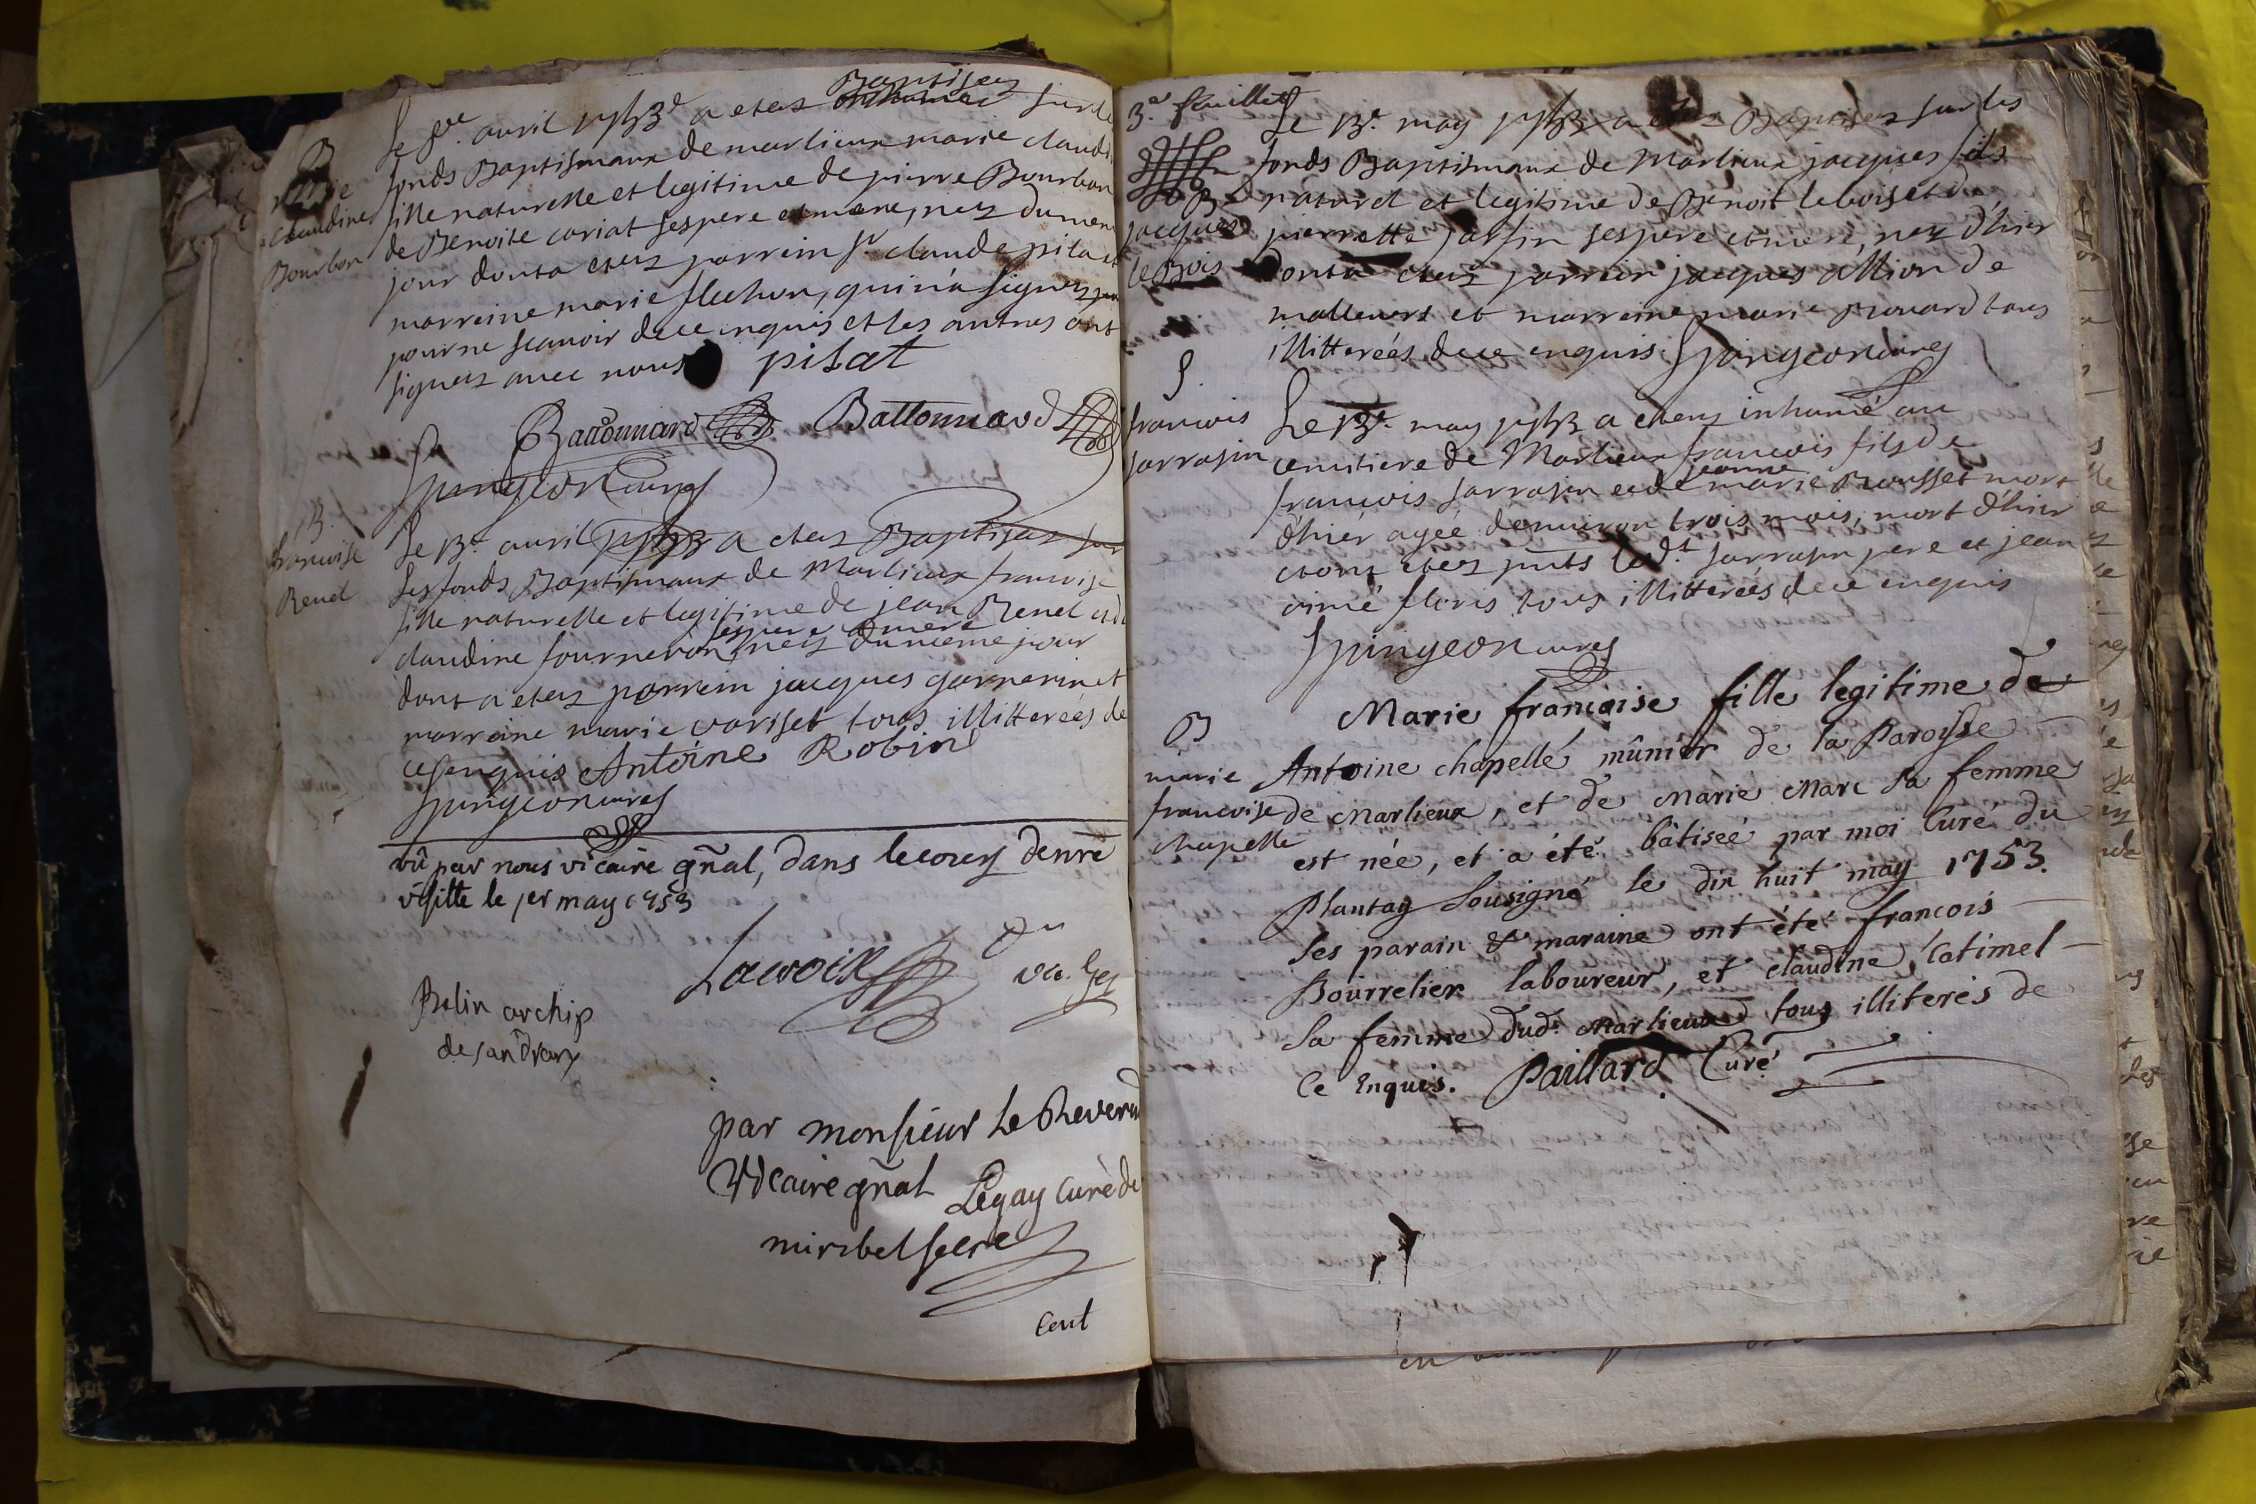 B
marie
claudine
Bourbon
Baptisez
Le avril a etez inhumée sur le
fonds Baptismaux de marlieux marie claudi
fille naturelle et legitime de pierre Bourbon
de Benoite coriat ses pere et mere, nez du mem
jour dont a etez parrein Sr claude pilat et
marreine marie flechon, qui n'a signez
pour ne scauoir de ce enquis et les autres ont
signez auec nous pilat
Battonnard Battonnard
Spingeon curez
B
francoise
Renel
Le 13e avril a etez Baptisez sur
les fonds Baptismaux de Marlieux francoise
fille naturelle et legitime de jean Renel et de
ses pere et mere
claudine fourneron, nez du meme jour
dont a etez parrein jacques garnerin et
marreine marie variset tous illitterées de
ce enquis Antoine Robin
Spingeon curez
vû par nous vicaire gñal, dans le cours de nre
visitte le 1er may 1753
Lacroix vic. gñ
Bolin archip
de sandrans
par monsieur le Reverend
Vicaire gñal Legay curé de
miribel secre
3e feuillet
B
jacques
le Bois
Le 13e may a etez Baptisez sur les
fonds Baptismaux de Marlieux jacques fils
naturel et legitime de Benoit lebois et de
pierrette ses pere et mere, nez d'hier
dont a etez parrein jacques allion de
et marreine marie tous
illitterées de ce enquis Spingeon curez
S
francois
sarrasin
Le 13e may a etez inhumé au
cemitiere de Marlieux francois fils de
jeanne
francois sarrasin et de marie Rousset mort
d'hier agée denuiron trois mois, mort d'hier
et ont etez pnts le dt sarrasin pere et jean
aimé floris tous illitterées de ce enquis
Spingeon curez
B
marie
francoise
chapelle
Marie françoise fille legitime de
Antoine chapellé mûnier de la Paroisse
de Marlieux, et de Marie Marc sa femme
est née, et a été bâtiseé par moi Curé du
Plantay Sousigné le dix huit may 1753.
Ses parain & maraine ont été françois
Bourrelier laboureur, et claudine Catimel
sa femme dud. Marlieux tous illiterés de
ce Enquis. Paillard Curé